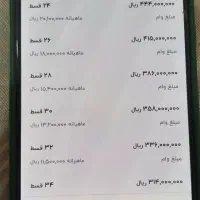 ۲۴ قسط ۴۴۴,۰۰۰,۰۰۰ ریال
ماهیانه ۲۰,۱۰۰,۰۰۰ ریال مبلغ وام
۲۶ قسط ۴۱۵,۰۰۰,۰۰۰ ریال
ماهیانه ۱۸,۰۰۰,۰۰۰ ریال مبلغ وام
۲۸ قسط ۳۸۶,۰۰۰,۰۰۰ ریال
ماهیانه ۱۵,۳۰۰,۰۰۰ ریال مبلغ وام
۳۰ قسط ۳۵۸,۰۰۰,۰۰۰ ریال
ماهیانه ۱۳,۲۰۰,۰۰۰ ریال مبلغ وام
۳۲ قسط ۳۳۶,۰۰۰,۰۰۰ ریال
ماهیانه ۱۱,۵۰۰,۰۰۰ ریال مبلغ وام
۳۴ قسط ۳۱۴,۰۰۰,۰۰۰ ریال